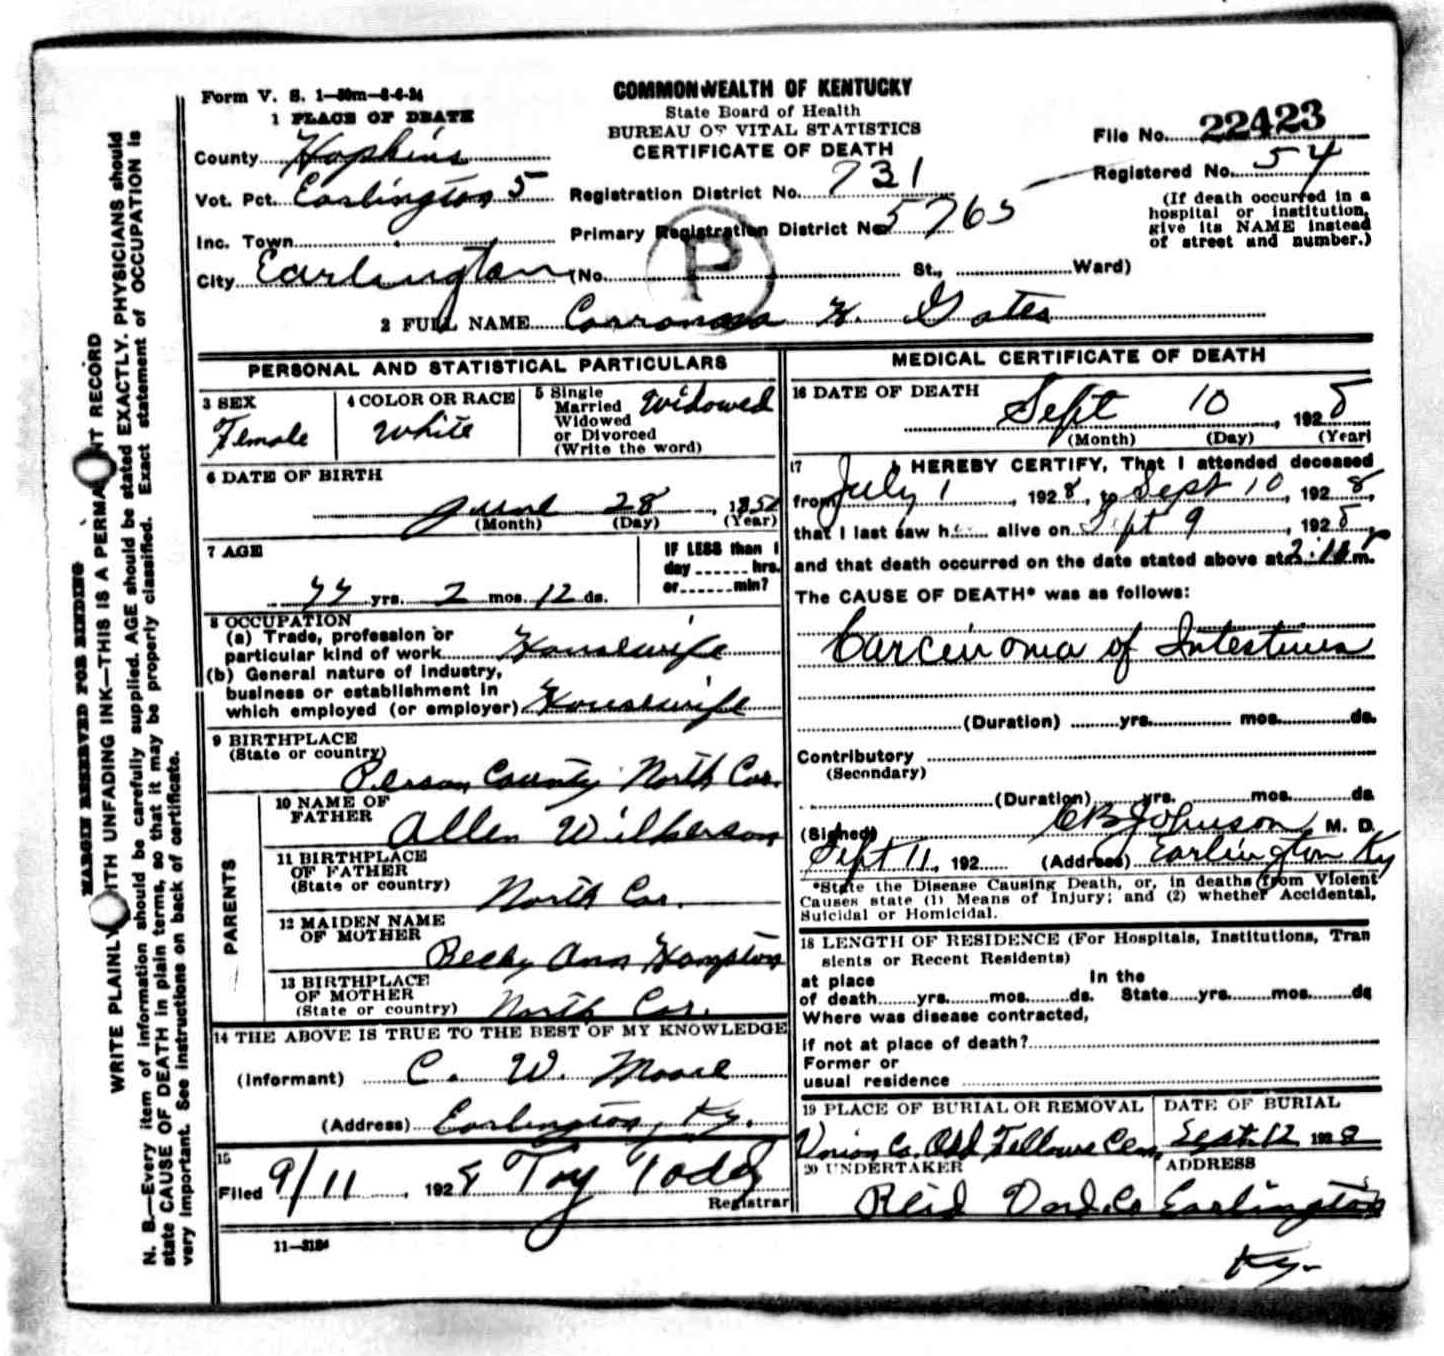 Form V. S. 1—50m—8-6-24
COMMONWEALTH OF KENTUCKY
State Board of Health
BUREAU OF VITAL STATISTICS
CERTIFICATE OF DEATH
File No. 22423
Registered No. 54
(If death occurred in a
hospital or institution,
give its NAME instead
of street and number.)
1 PLACE OF DEATH
County Hopkins
Vot. Pct. Earlington 5
Registration District No. 731
Inc. Town
Primary Registration District No 5765
P
City Earlington (No. St., Ward)
2 FULL NAME W. Gates
PERSONAL AND STATISTICAL PARTICULARS
3 SEX
Female
4 COLOR OR RACE
White
5 Single
Married
Widowed
or Divorced
(Write the word)
Widowed
6 DATE OF BIRTH
June 28, 1851
(Month) (Day) (Year)
7 AGE
77 yrs. 2 mos. 12 ds.
IF LESS than 1
day ...... hrs.
or ...... min?
8 OCCUPATION
(a) Trade, profession or
particular kind of work Housewife
(b) General nature of industry,
business or establishment in
which employed (or employer) Housewife
9 BIRTHPLACE
(State or country)
Person County North Car.
PARENTS
10 NAME OF
FATHER
Allen Wilkerson
11 BIRTHPLACE
OF FATHER
(State or country)
North Car.
12 MAIDEN NAME
OF MOTHER
Becky Ann Hampton
13 BIRTHPLACE
OF MOTHER
(State or country)
North Car.
14 THE ABOVE IS TRUE TO THE BEST OF MY KNOWLEDGE
(Informant) C. W. Moore
(Address) Earlington, Ky.
15
Filed 9/11, 1928 Toy Todd
Registrar
11—3184
MEDICAL CERTIFICATE OF DEATH
16 DATE OF DEATH
Sept 10, 1928
(Month) (Day) (Year)
17 I HEREBY CERTIFY, That I attended deceased
from July 1, 1928, to Sept 10, 1928,
that I last saw h alive on Sept 9, 1928
and that death occurred on the date stated above at m.
The CAUSE OF DEATH* was as follows:
Carcinoma of Intestines
(Duration) yrs. mos. ds.
Contributory
(Secondary)
(Duration) yrs. mos. ds
(Signed) CB Johnson M. D.
Sept 11, 192 (Address) Earlington Ky
*State the Disease Causing Death, or, in deaths from Violent
Causes state (1) Means of Injury; and (2) whether Accidental,
Suicidal or Homicidal.
18 LENGTH OF RESIDENCE (For Hospitals, Institutions, Tran
sients or Recent Residents)
at place In the
of death yrs. mos. ds. State yrs. mos. ds
Where was disease contracted,
if not at place of death?
Former or
usual residence
19 PLACE OF BURIAL OR REMOVAL
Union Co. Odd Fellows Cem.
DATE OF BURIAL
Sept. 12 1928
20 UNDERTAKER
Reid Co
ADDRESS
Earlington
Ky.
MARGIN RESERVED FOR BINDING
WRITE PLAINLY WITH UNFADING INK—THIS IS A PERMANENT RECORD
N. B.—Every item of information should be carefully supplied. AGE should be stated EXACTLY. PHYSICIANS should
state CAUSE OF DEATH in plain terms, so that it may be properly classified. Exact statement of OCCUPATION is
very important. See instructions on back of certificate.